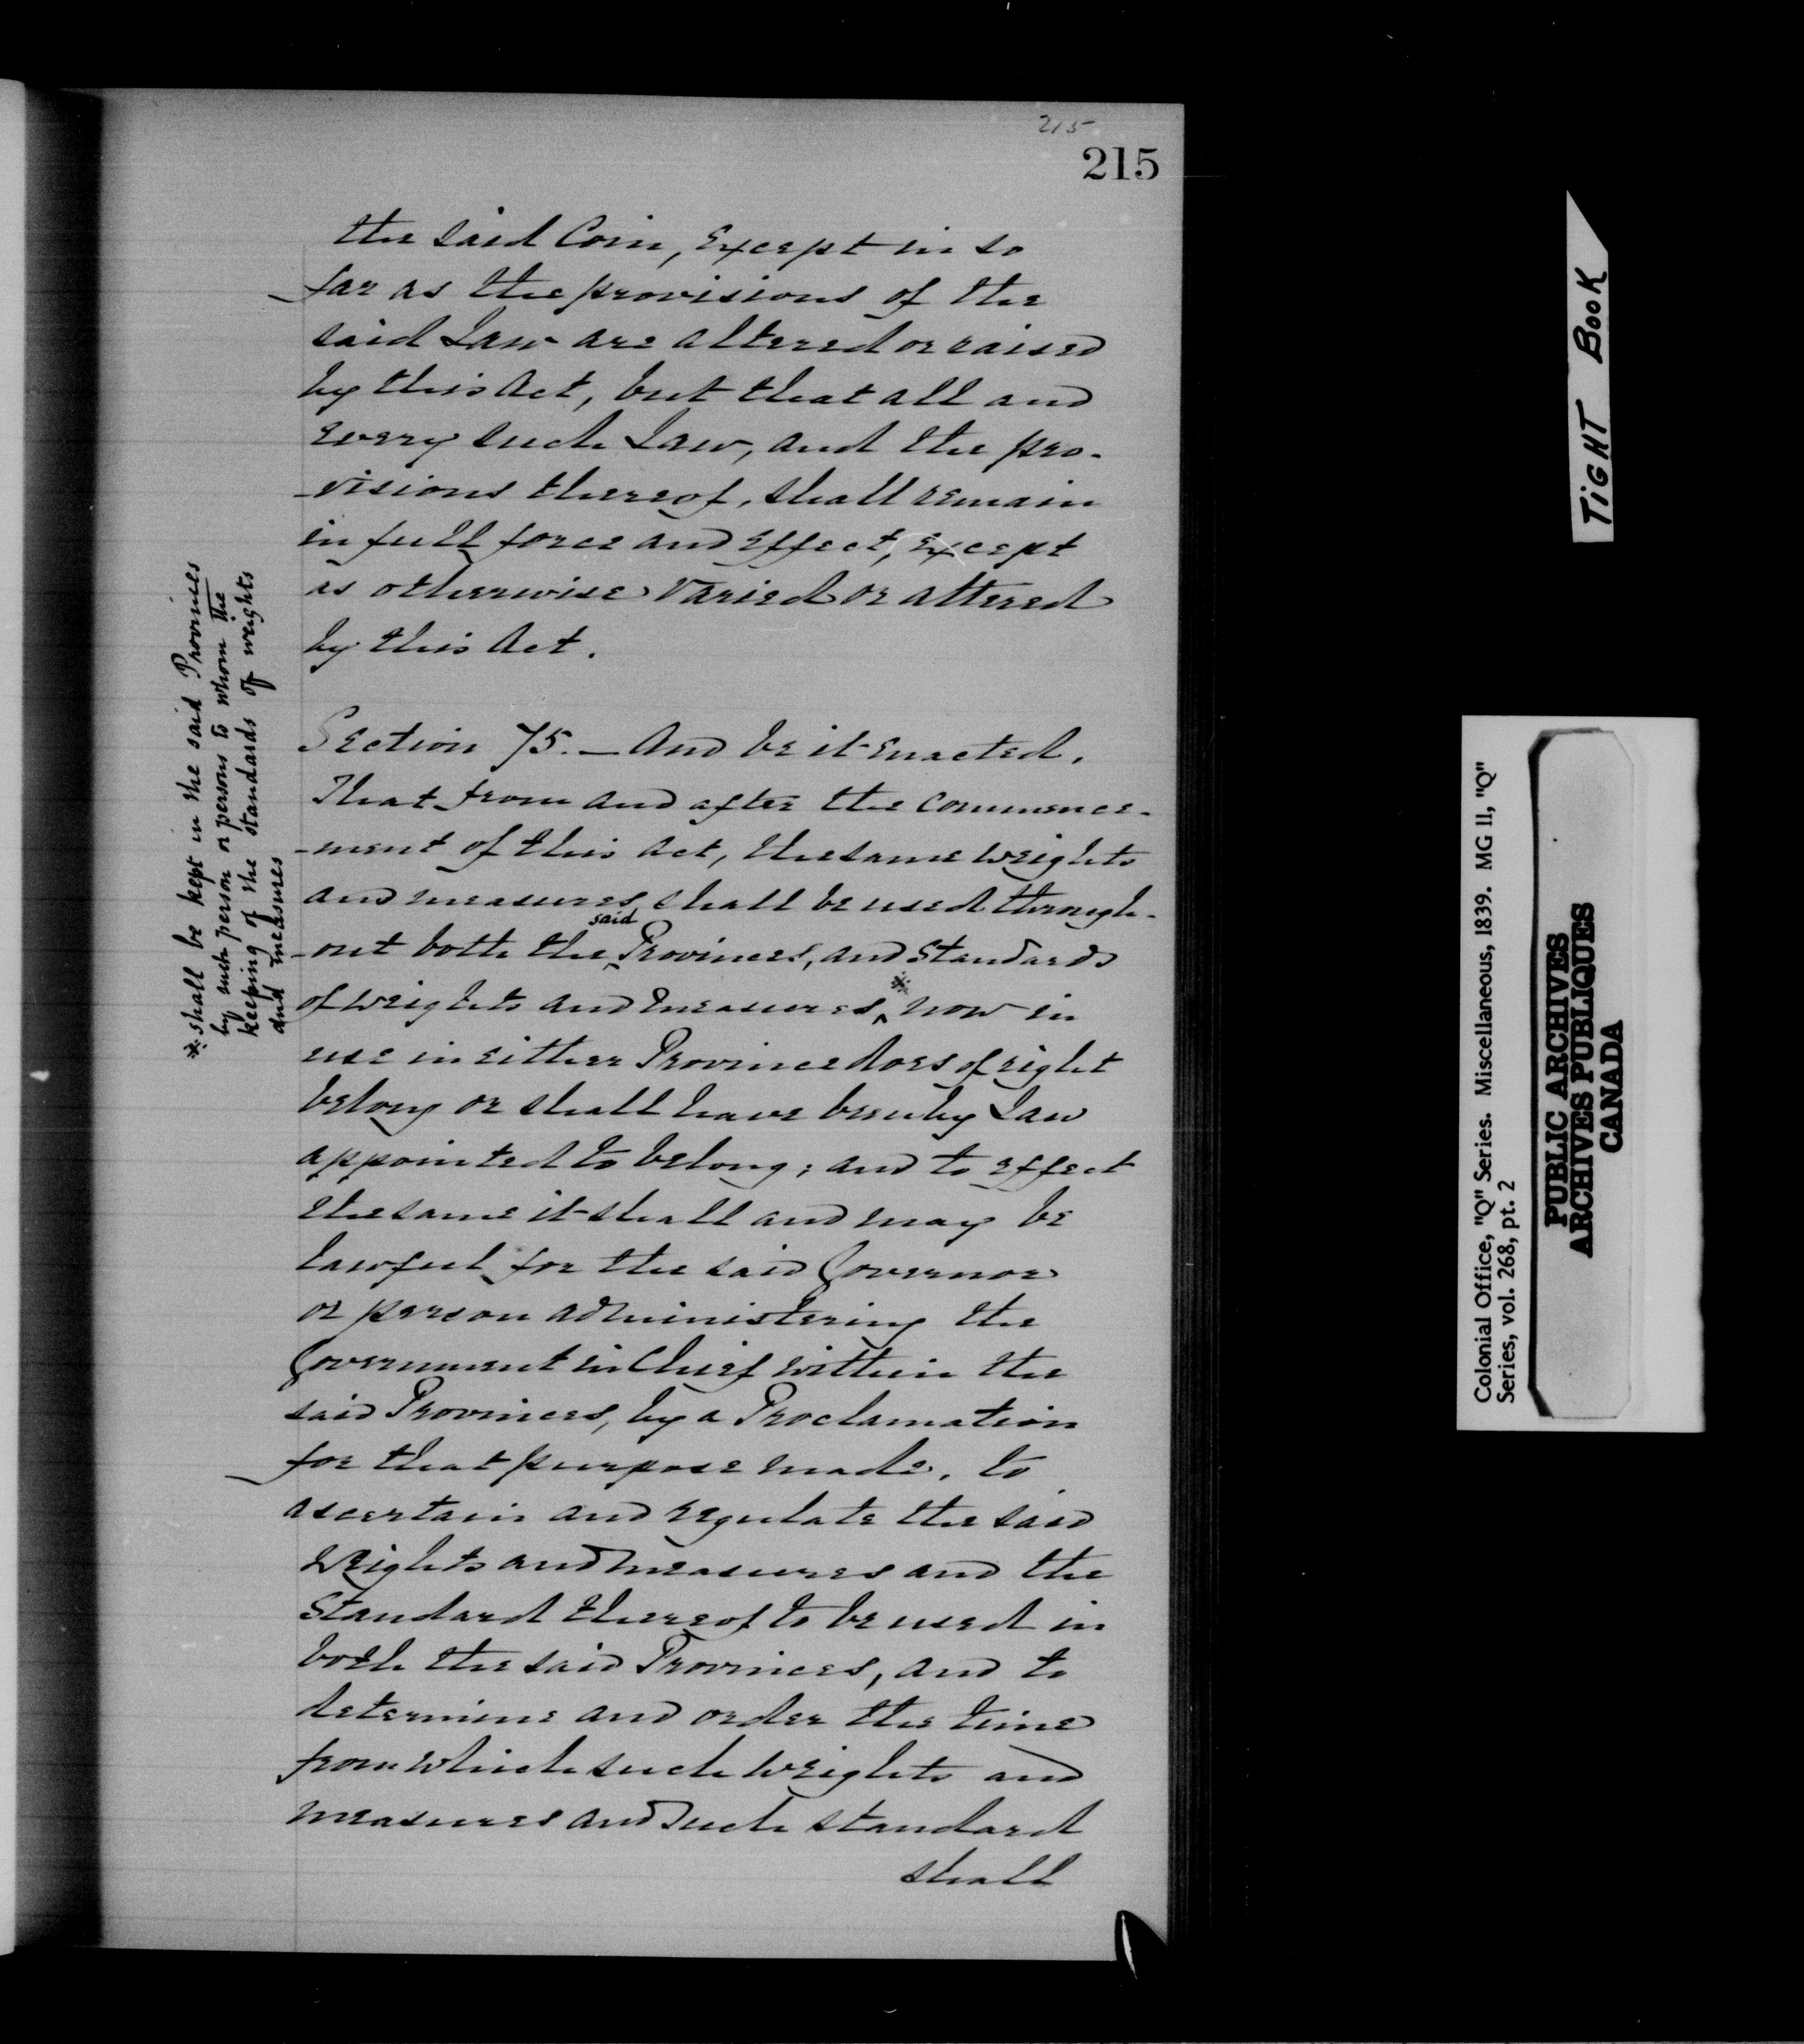 215
215
the said Coin, Except in so
far as the provisions of the
said Law are altered or raised
by this Act, but that all and
Every such Law, and the pro-
-visions thereof, shall remain
in full force and Effect, Except
as otherwise varied or altered
by this Act.
Section 75. — And be it Enacted,
That from and after the Commence-
-ment of this Act, the same Weights
and measures shall be used through-
said
-out both the ‸ Provinces, and Standards
*
of Weights and Measures ‸ now in
use in either Province does of right
belong or shall have been by Law
appointed to belong; and to Effect
the same it shall and may be
lawful for the said Governor
or person administering the
Government in Chief within the
said Provinces, by a Proclamation
for that purpose made, to
ascertain and regulate the said
Weights and Measures and the
Standard thereof to be used in
both the said Provinces, and to
determine and order the time
from which such Weights and
Measures and such standard
shall
* shall be kept in the said Provinces
by such person or persons to whom the
keeping of the standards of weights
and measures
TIGHT BOOK
Colonial Office, "Q" Series. Miscellaneous, 1839. MG 11, "Q"
Series, vol. 268, pt. 2
PUBLIC ARCHIVES
ARCHIVES PUBLIQUES
CANADA